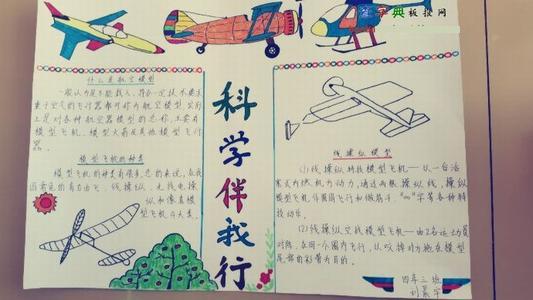 老字典板报网
什么是航空模型
一般认为是不能载人,符合一定技术要求
重于空气的飞行器都可称为航空模型,实际
上是对各种航空器模型的总称,主要有
模型飞机、模型火箭及其他模型飞行
器。
模型飞机的种类
模型飞机的种类有很多,总的来说,在我
国常见的有自由飞、线操纵、无线电操
纵和像真模
型飞机四大类。
科学伴我行
线操纵模型
(1)线操纵特技模型飞机——从一台活
塞式内燃机为动力,通过两根操纵线,操纵
模型飞机作圆周飞行和做筋斗、"∞"字等各种特
技动作。
(2)线操纵空战模型飞机——由2名运动员
对阵,在同一个圈内飞行,以咬掉对方拖在模型
尾部的彩带为目的。
四年三班
刘